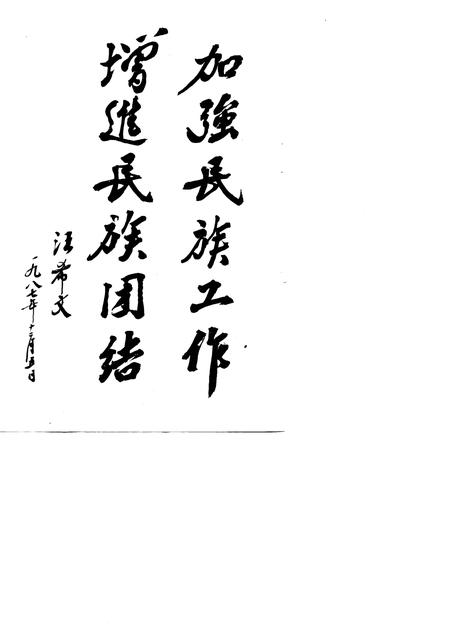 加強民族工作
增進民族团结
汪希文
一九八七年十二月五日